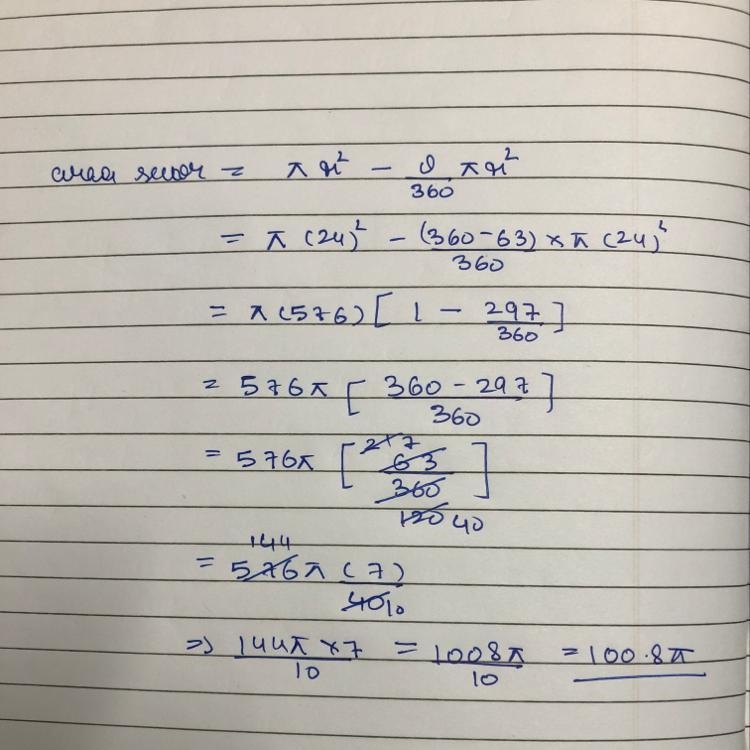 area secor = πr² - θ/360 πr²
= π (24)² - (360-63)/360 × π (24)²
= π(576) [ 1 - 297/360 ]
= 576π [ 360 - 297 / 360 ]
= 576π [ 63/360 ] 21 7 120 40
= 576π (7) / 40 144 10
⇒ 144π × 7 / 10 = 1008π / 10 = 100.8π